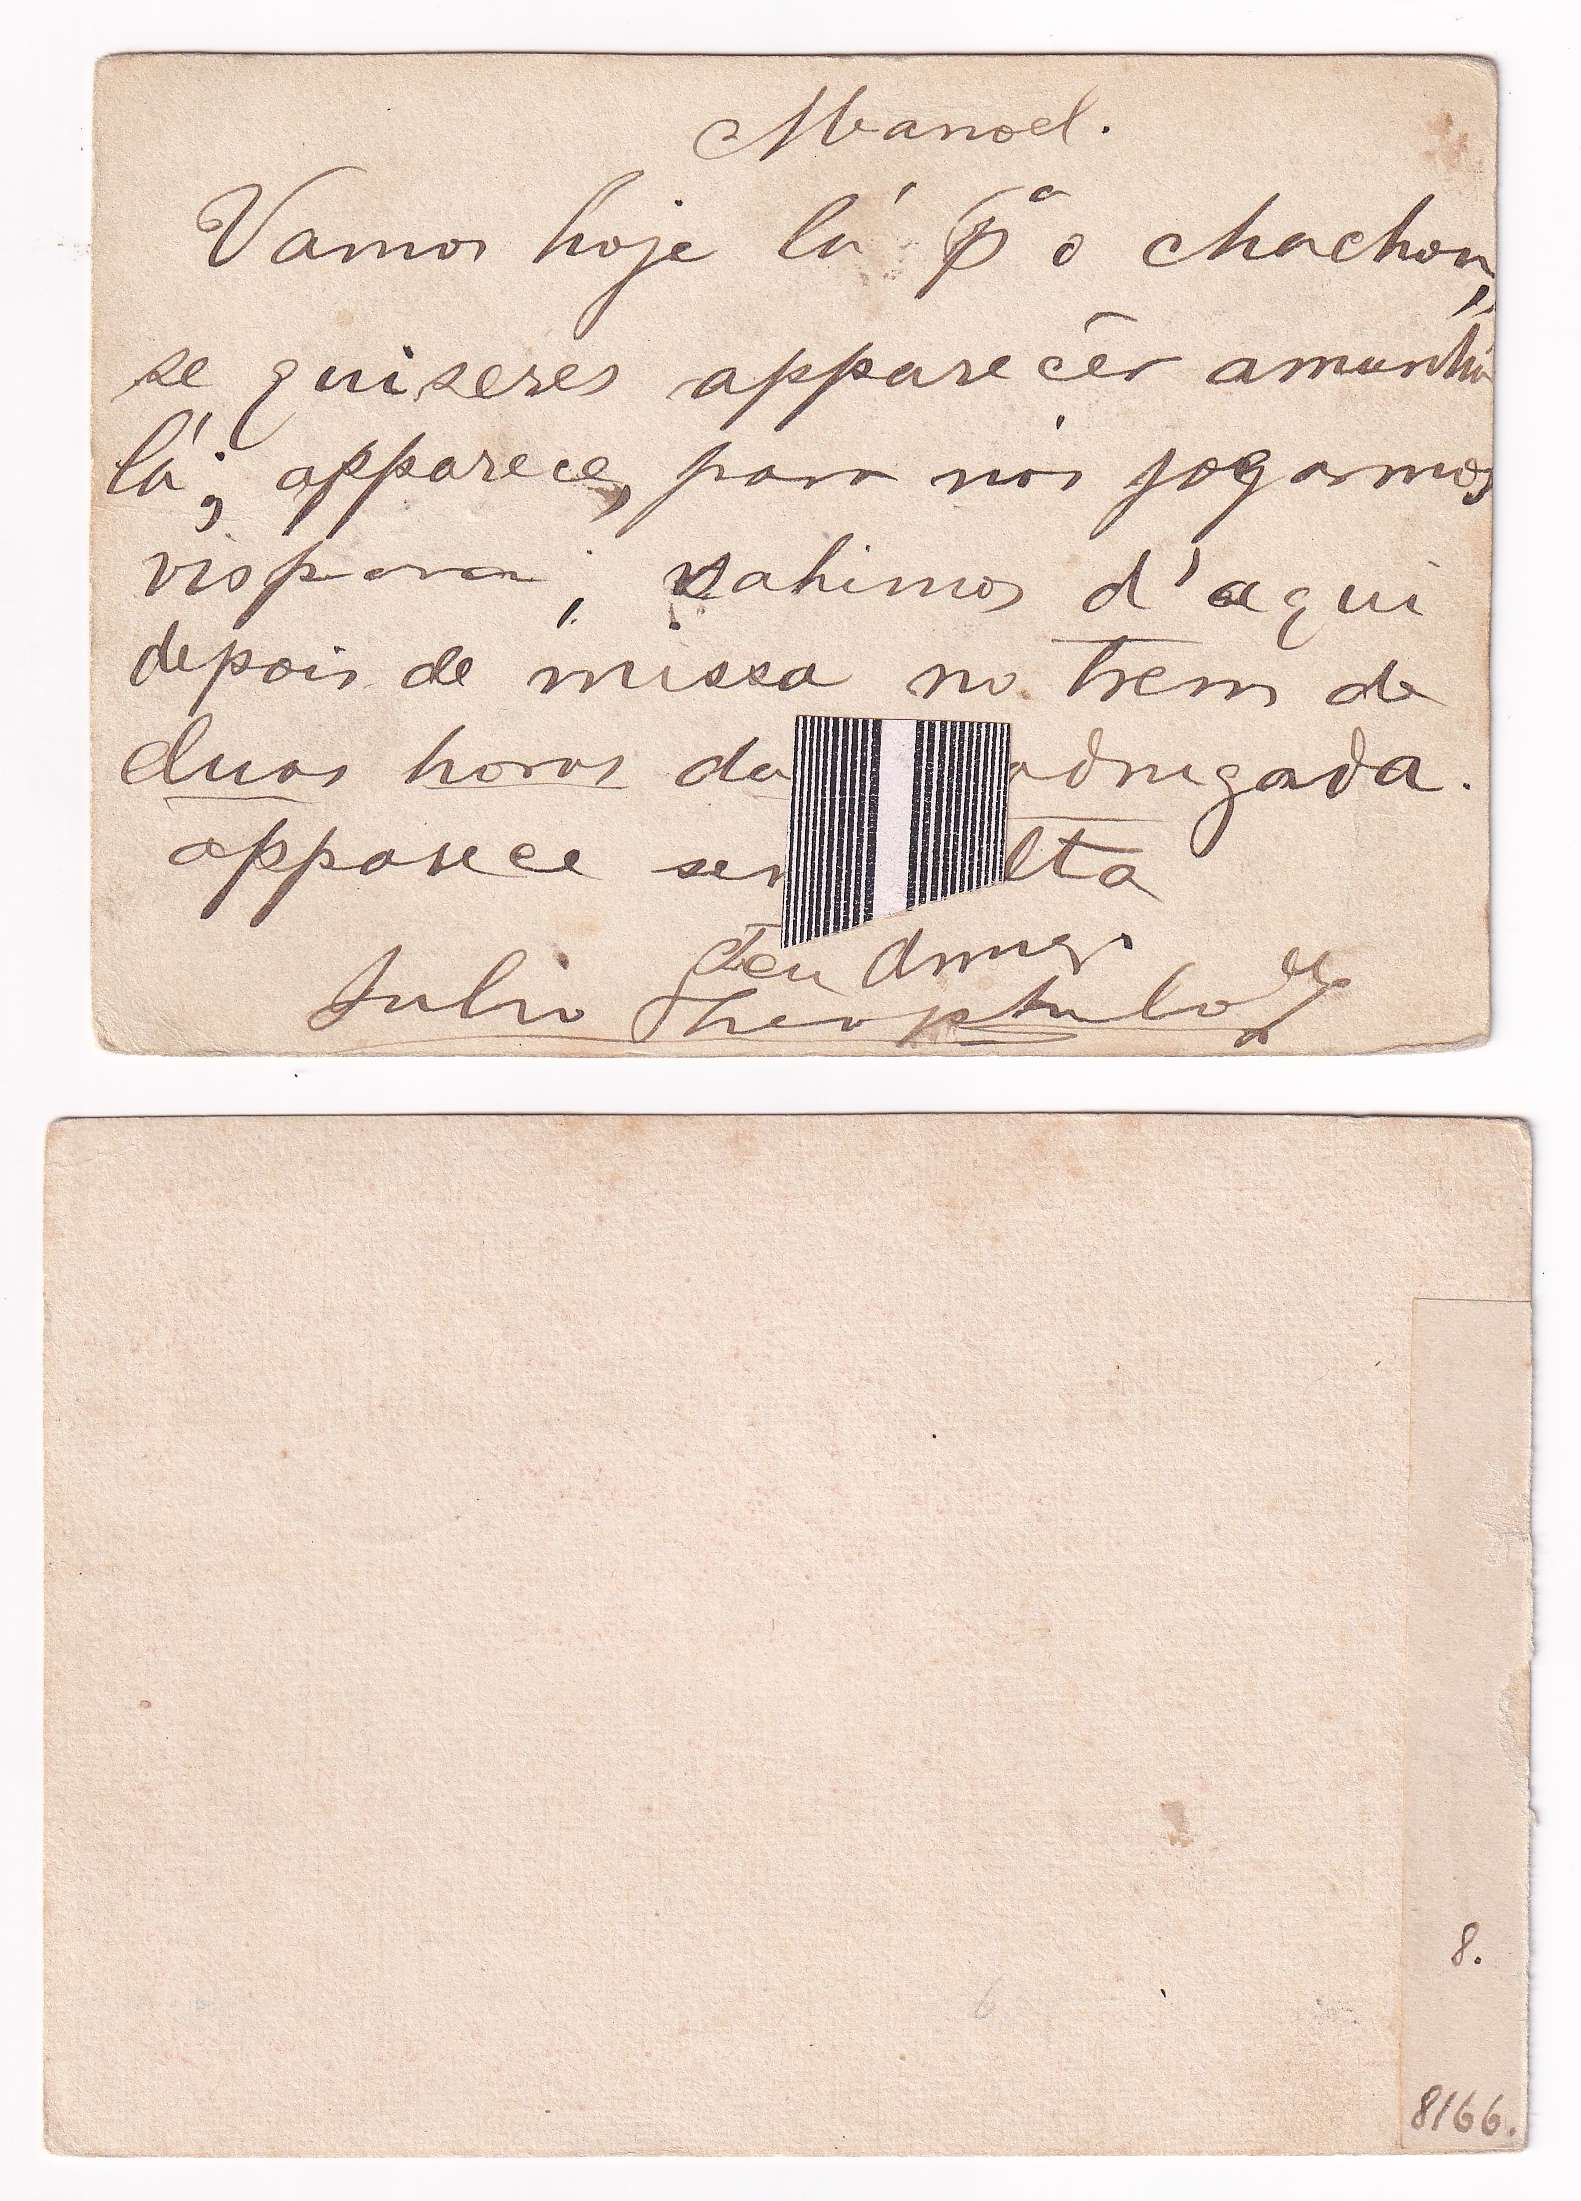 Manoel.
Vamos hoje lá pª o chachon,
se quiseres apparecêr amanhã
lá; apparece, para nós jogarmos
vispora, sahimos d'aqui
depois de missa no trem de
duas horas da adrugada.
apparece sem lta
Teu
Julio Theophilo
8.
6
8166.